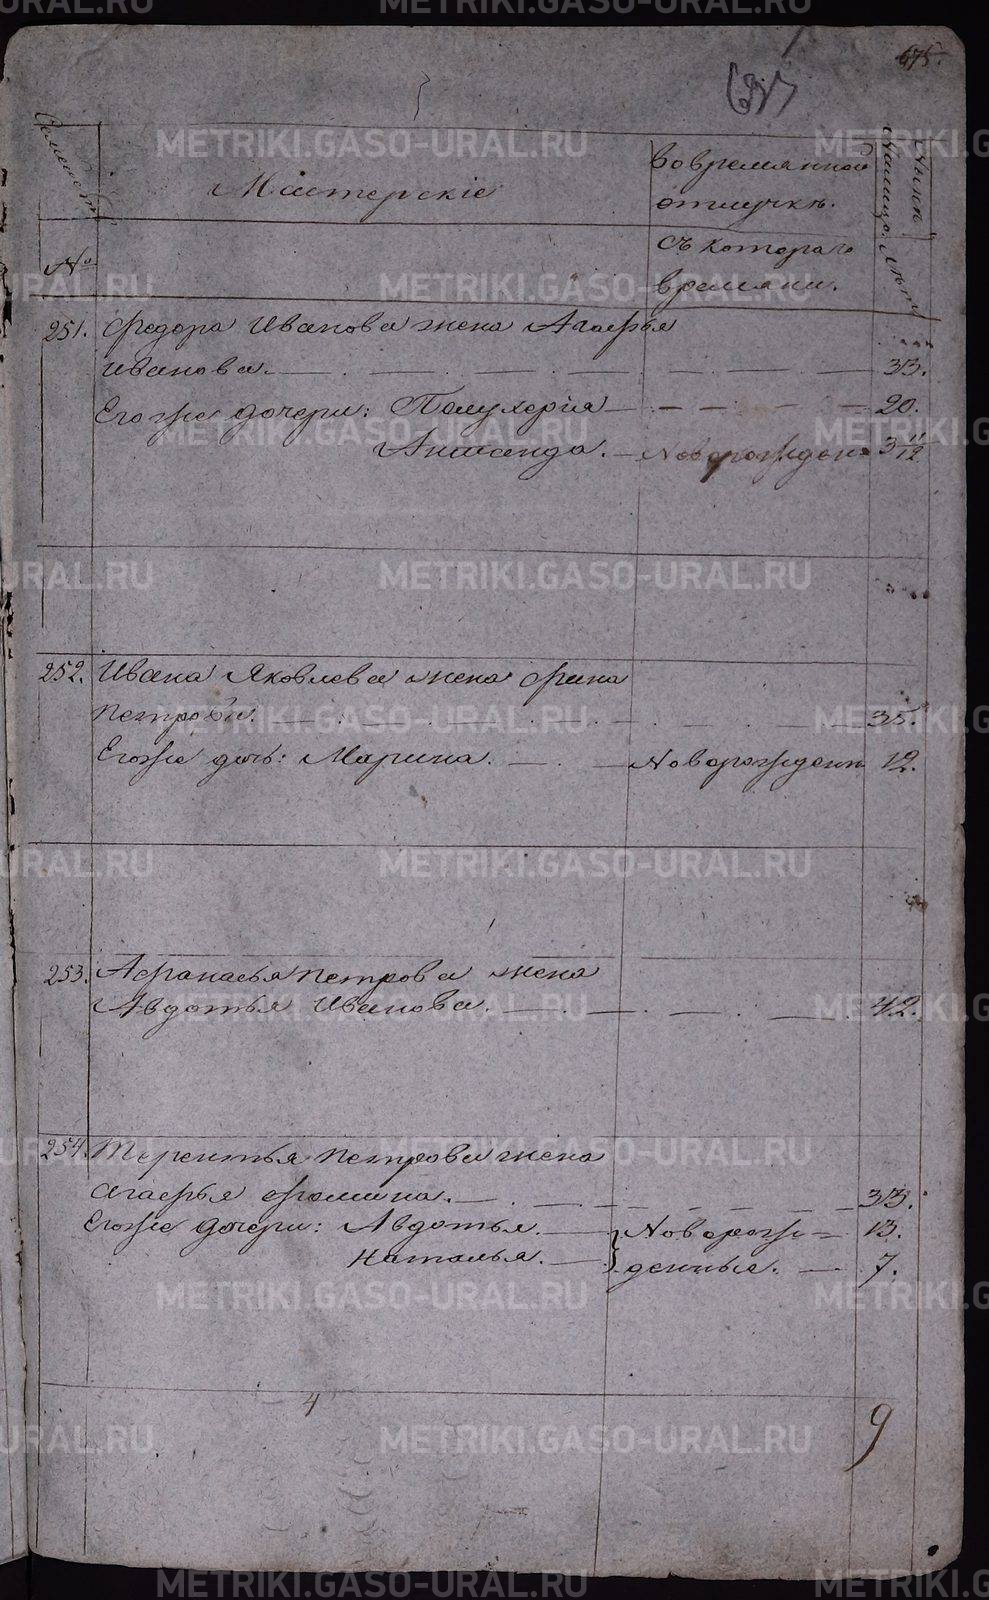 METRIKI.GASO-URAL.RU
675.
Семействъ
№
Мастерскіе
Во временной
отлучкѣ.
Съ котораго
времяни.
Нынѣ
на лицо.
Лѣты
251.
Федора Иванова жена Агафья
Иванова. 33.
Егоже дочери: Пелухерія 20.
Новорожден 3 11/12
252.
Ивана Яковлева жена Фрина
Петрова. 35.
Егоже дочь: Марина. Новорожденн 12.
253.
Афанасья Петрова жена
Авдотья Иванова. 42.
254.
Терентья Петрова жена
Агафья Фомина. 33.
Егоже дочери: Авдотья. Новорож= 13.
Наталья. денные. 7.
4
9